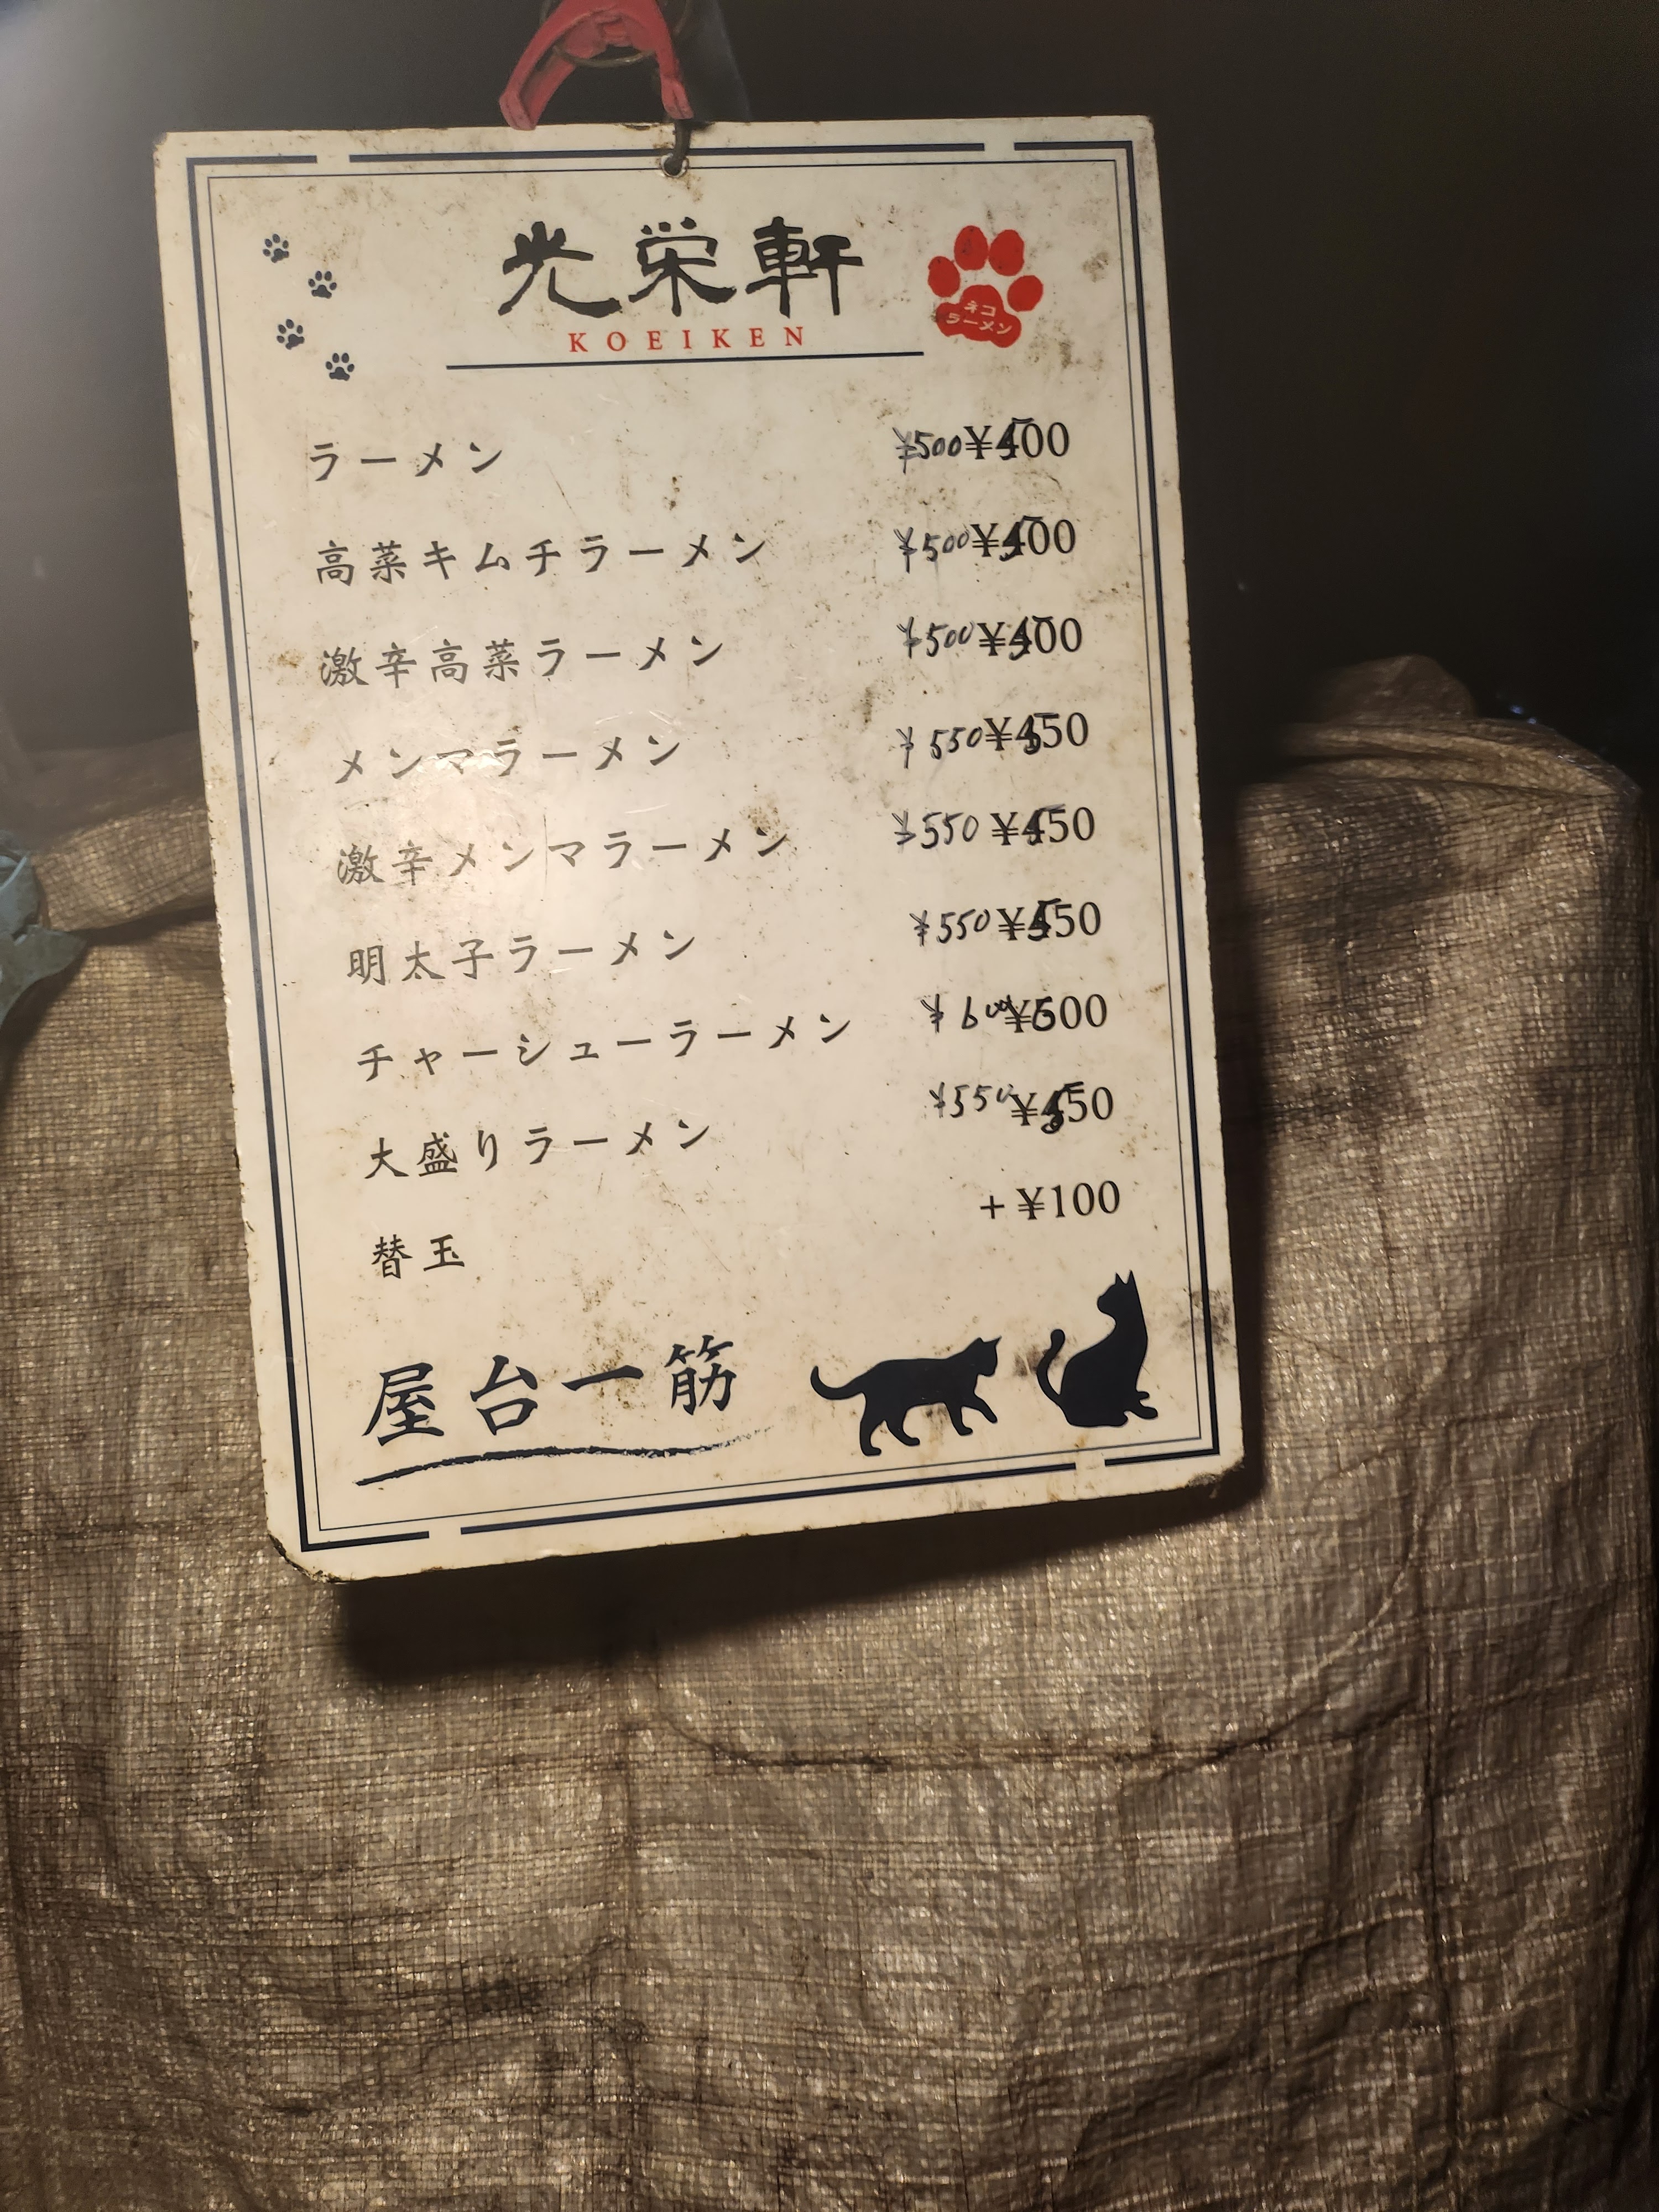 光栄軒
KOEIKEN
ネコ
ラーメン
ラーメン ¥500 ¥500
高菜キムチラーメン ¥500 ¥500
激辛高菜ラーメン ¥500 ¥500
メンマラーメン ¥550 ¥550
激辛メンマラーメン ¥550 ¥550
明太子ラーメン ¥550 ¥550
チャーシューラーメン ¥600 ¥600
大盛りラーメン ¥550 ¥550
替玉 +¥100
屋台一筋